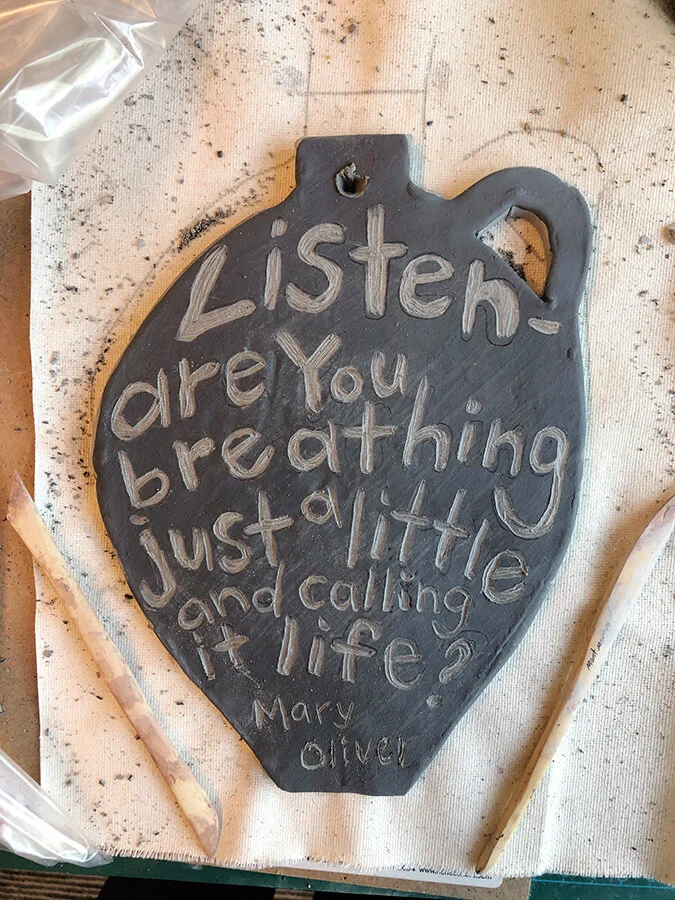 Listen-
are You
breathing
just a little
and calling
it life?
Mary
Oliver